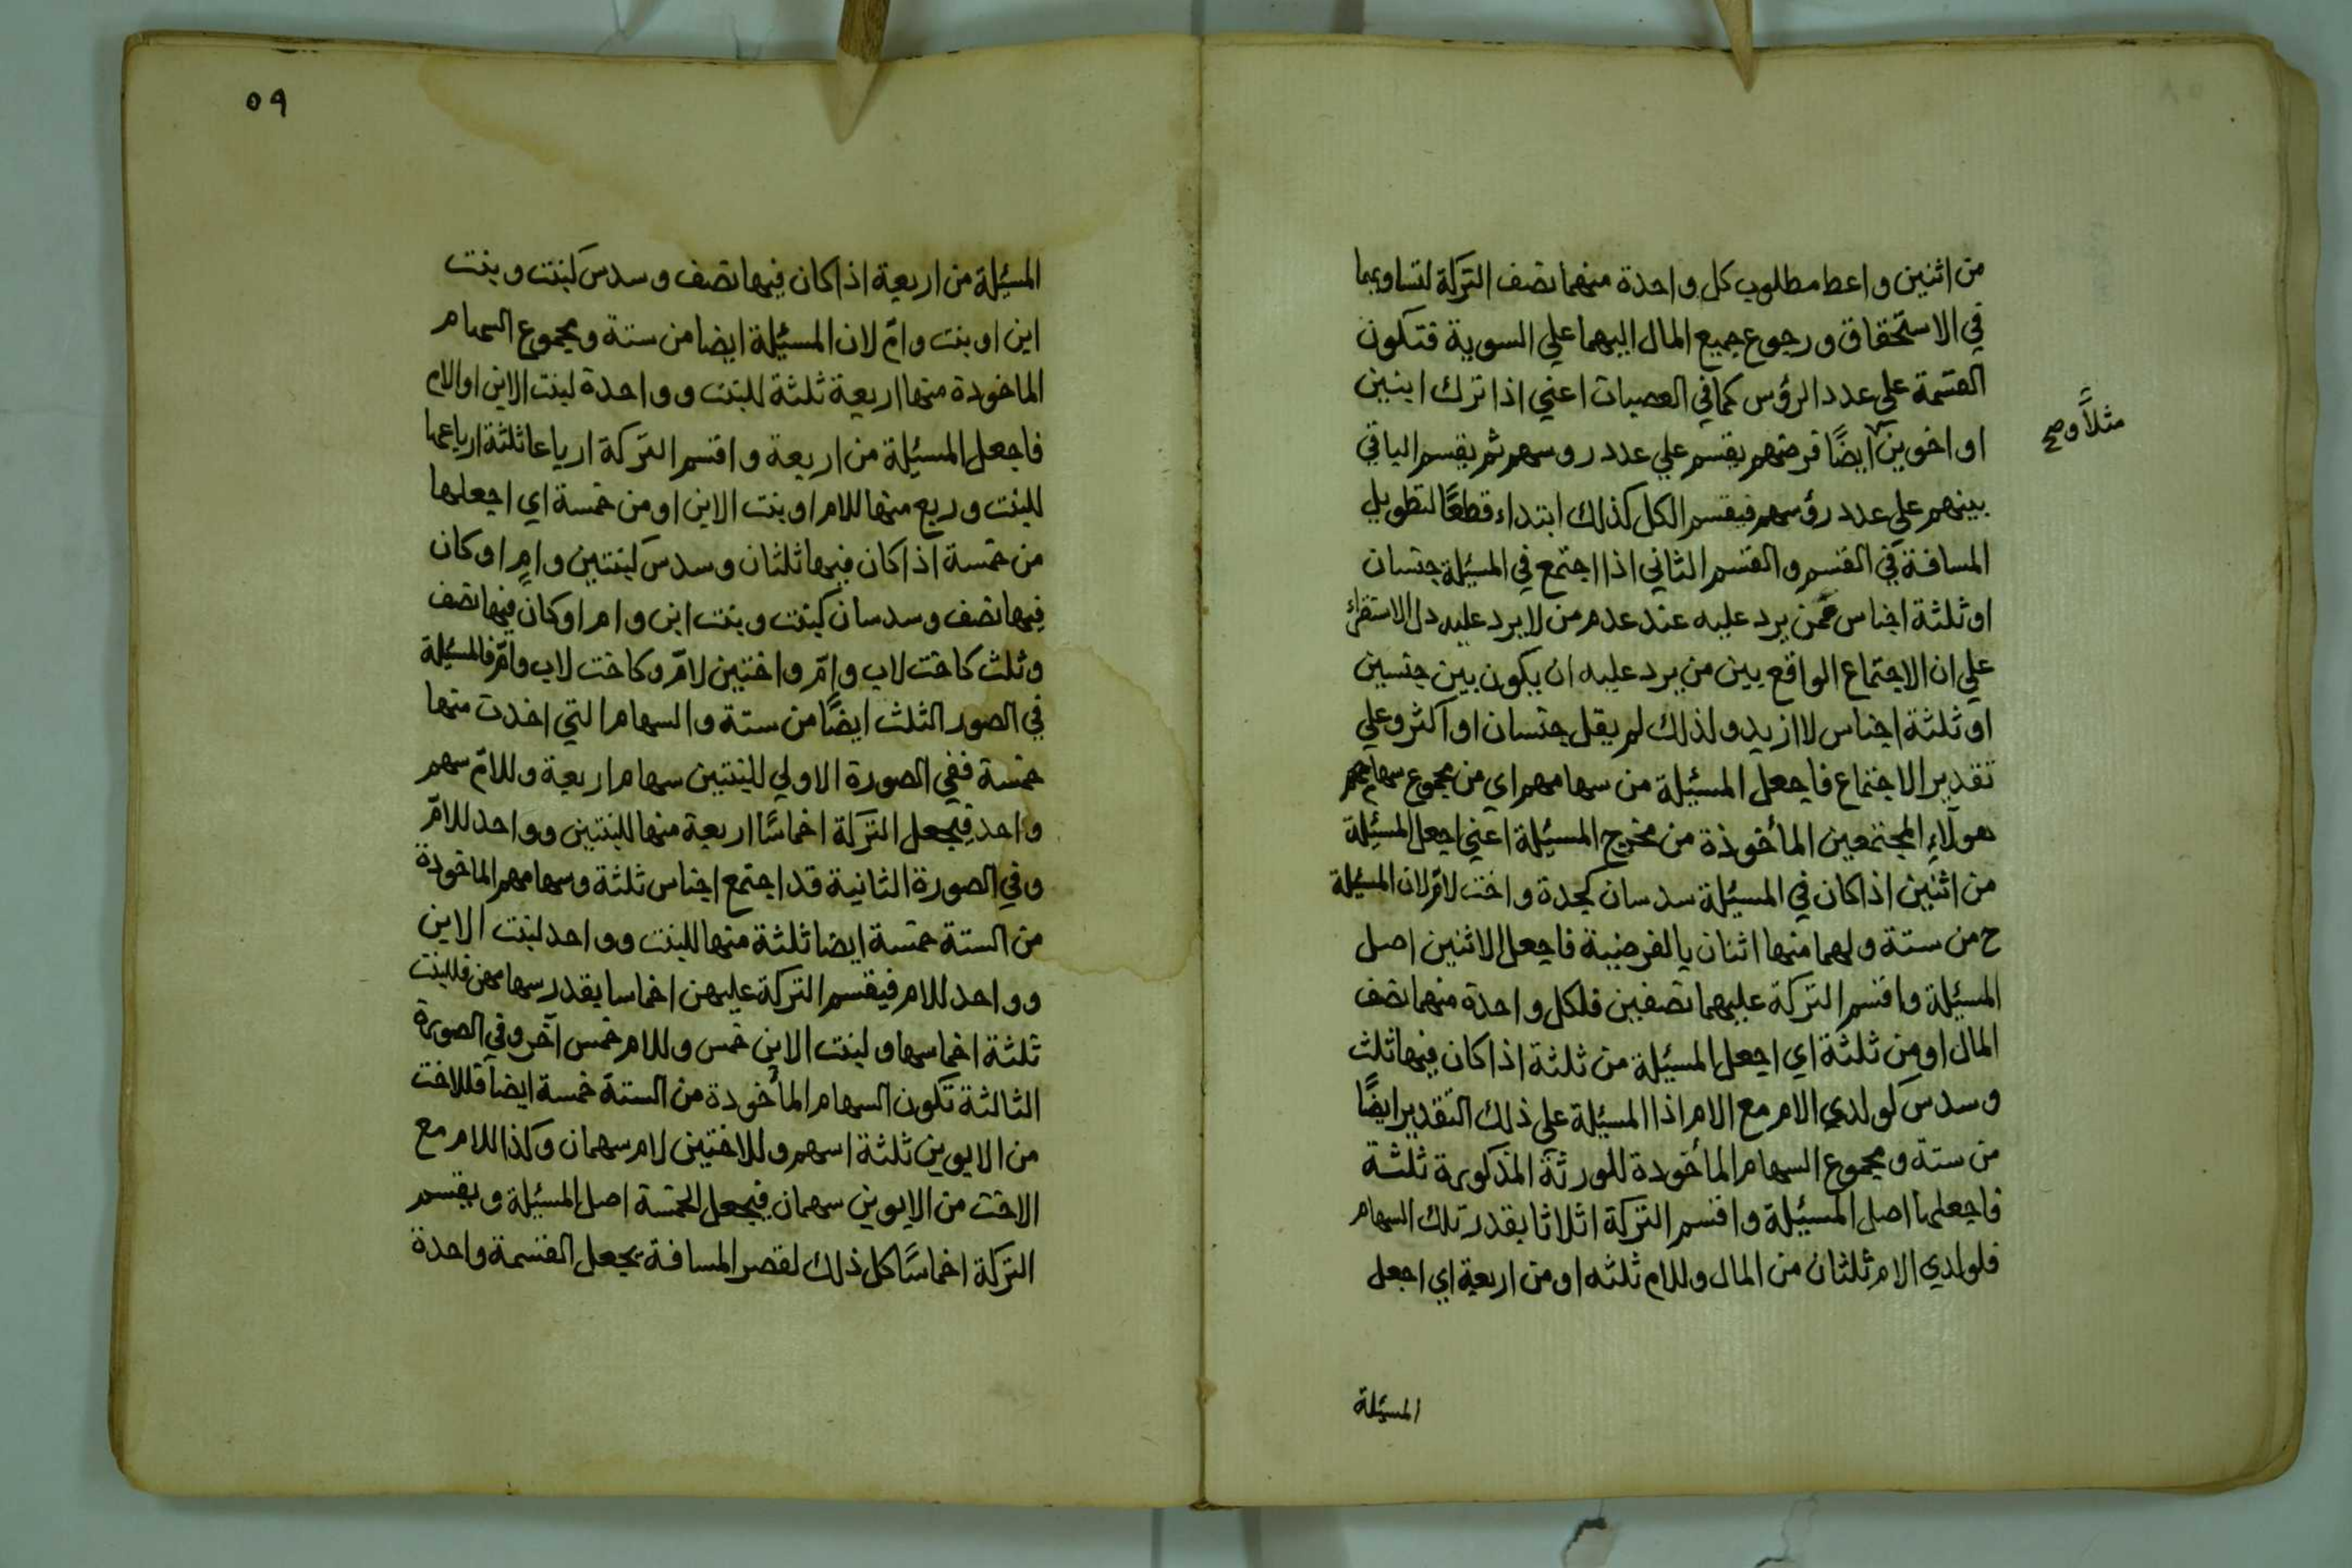 من اثنين واعط مطلوب كل واحدة منهما نصف التركة لتساويهما
في الاستحقاق ورجوع جميع المال اليهما علي السوية فتكون
القسمة علي عدد الرؤس كما في العصبات اعني اذا ترك ابنين
او اخوين ايضًا فرضهم يقسم علي عدد روسهم ثم يقسم الباقي
مثلاً وصح
بينهم علي عدد رؤسهم فيقسم الكل كذلك ابتداء قطعًا لتطويل
المسافة في القسم والقسم الثاني اذا اجتمع في المسئلة جنسان
او ثلثة اجناس ممن يرد عليه عند عدم من لا يرد عليه دل الاستقراء
علي ان الاجتماع الواقع بين من يرد عليه ان يكون بين جنسين
او ثلثة اجناس لا ازيد ولذلك لم يقل جنسان او اكثر وعلي
تقدير الاجتماع فاجعل المسئلة من سهامهم اي من مجموع سهامهم
هولآءِ المجتمعين المأخوذة من مخرج المسئلة اعني اجعل المسئلة
من اثنين اذا كان في المسئلة سدسان كجدة واخت لامّ لان المسئلة
ح من ستة ولهما منها اثنان بالفرضية فاجعل الاثنين اصل
المسئلة واقسم التركة عليهما نصفين فلكل واحدة منهما نصف
المال او من ثلثة اي اجعل المسئلة من ثلثة اذا كان فيها ثلث
وسدس كولدي الام مع الام اذا المسئلة علي ذلك التقدير ايضًا
من ستة ومجموع السهام المأخودة للورثة المذكورة ثلثة
فاجعلها اصل المسئلة واقسم التركة اثلاثا بقدر تلك السهام
فلولدي الام ثلثان من المال وللام ثلثه او من اربعة اي اجعل
المسئلة
٥٩
المسئلة من اربعة اذا كان فيها نصف وسدس كبنت وبنت
ابن او بنت وامّ لان المسئلة ايضا من ستة ومجموع السهام
الماخودة منها اربعة ثلثة للبنت وواحدة لبنت الابن او الام
فاجعل المسئلة من اربعة واقسم التركة ارباعا ثلثة ارباعها
للبنت وربع منها للام او بنت الابن او من خمسة اي اجعلها
من خمسة اذا كان فيها ثلثان وسدس كبنتين وامٍ او كان
فيها نصف وسدسان كبنت وبنت ابن وام او كان فيها نصف
وثلث كاخت لاب وامّ واختين لامّ وكاخت لاب وامّ فالمسئلة
في الصور الثلث ايضًا من ستة والسهام التي اخدت منها
خمسة ففي الصورة الاولي للبنتين سهام اربعة وللامّ سهم
واحد فيجعل التركة اخماسًا اربعة منها للبنتين وواحد للامّ
وفي الصورة الثانية قد اجتمع اجناس ثلثة وسهامهم الماخودة
من الستة خمسة ايضا ثلثة منها للبنت وواحد لبنت الابن
وواحد للام فيقسم التركة عليهن اخماسا بقدر سهامهن فللبنت
ثلثة اخماسها ولبنت الابن خمس وللام خمس آخر وفي الصورة
الثالثة تكون السهام المأخودة من الستة خمسة ايضا فللاخت
من الابوين ثلثة اسهم وللاختين لام سهمان وكذا للام مع
الاخت من الابوين سهمان فيجعل الخمسة اصل المسئلة ويقسم
التركة اخماسًا كل ذلك لقصر المسافة بجعل القسمة واحدة